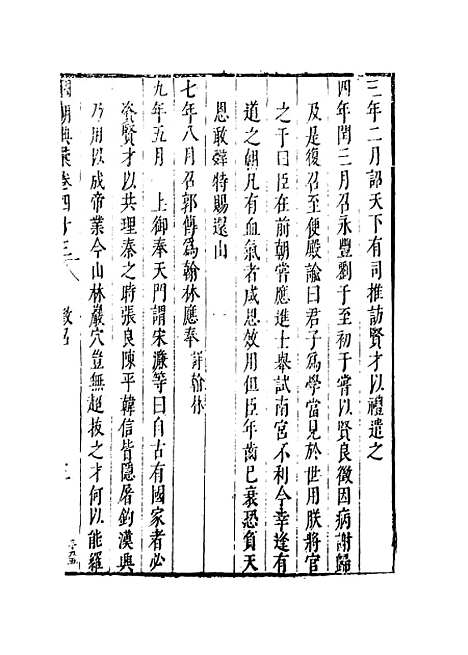 三年二月詔天下有司推訪賢才以禮遣之
四年閏三月召永豐劉于至初于嘗以賢良徵因病謝歸
及是復召至便殿諭曰君子爲學當見於世用朕將官
之于曰臣在前朝嘗應進士舉試南宮不利今幸逢有
道之朝凡有血氣者咸思效用但臣年齒已衰恐負天
恩敢辭特賜還山
七年八月召郭傳爲翰林應奉 詳翰林
九年五月 上御奉天門謂宋濂等曰自古有國家者必
資賢才以共理秦之時張良陳平韓信皆隱屠釣漢興
乃用以成帝業今山林巖穴豈無超拔之才何以能羅
國朝典彙卷四十三 徵召 二